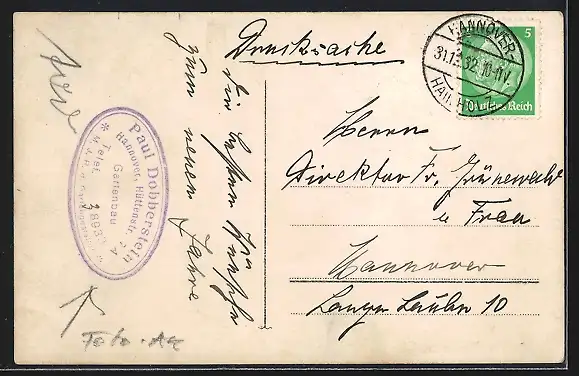 Drucksache
HANNOVER
31.12.32. 10-11V.
5
Deutsches Reich
Herrn
Direktor Fr. Grünewald
u Frau
Hannover
Lange Laube 10
Die besten Wünsche
zum neuen Jahre
Paul Dobberstein
Hannover, Hüttenstr. 7A
Gartenbau
Telef.
Foto.